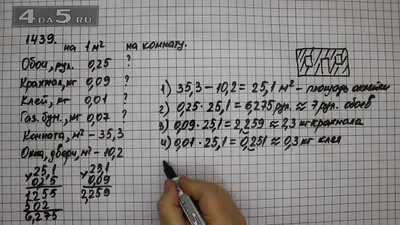 4da5.ru
1439. на 1м² на комнату.
Обои, рул. 0,25 ?
Крахмал, кг 0,09 ?
Клей, кг 0,01 ?
Газ. бум., кг 0,07 ?
Комната, м² – 35,3
Окна, двери, м² – 10,2
25,1
0,25
1255
502
6,275
25,1
0,09
2,259
1) 35,3 – 10,2 = 25,1 м² – площадь оклейки
2) 0,25 · 25,1 = 6,275 рул. ≈ 7 рул. обоев
3) 0,09 · 25,1 = 2,259 ≈ 2,3 кг крахмала
4) 0,01 · 25,1 = 0,251 ≈ 0,3 кг клея